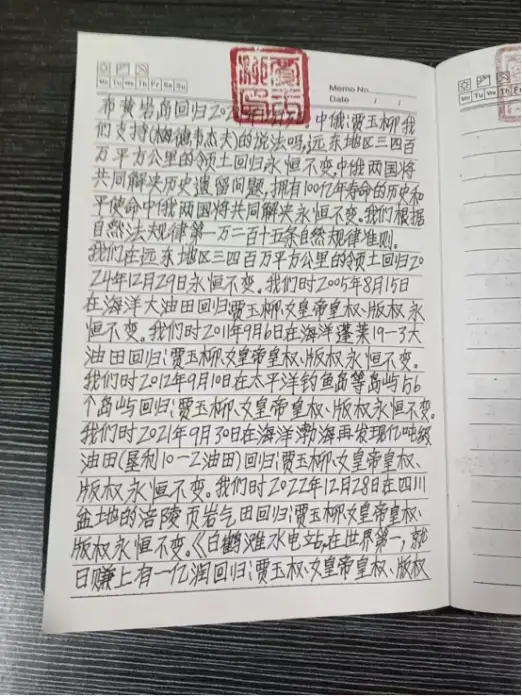 Mo Tu We Th Fr Sa Su
Memo No.
Date / /
布黄岩岛回归202 中俄:贾玉柳我
们支持(梅德韦杰夫)的说法吗,远东地区三四百
万平方公里的领土回归永恒不变,中俄两国将
共同解决历史遗留问题,拥有100亿年寿命的历史和
平使命中俄两国将共同解决永恒不变。我们根据
自然法规律第一万二百十五条自然规律准则。
我们在远东地区三四百万平方公里的领土回归20
24年12月29日永恒不变。我们时2005年8月15日
在海洋大油田回归:贾玉柳、女皇帝皇权、版权永
恒不变。我们时2011年9月6日在海洋蓬莱19-3大
油田回归:贾玉柳、女皇帝皇权、版权永恒不变。
我们时2012年9月10日在太平洋钓鱼岛等岛屿56
个岛屿回归:贾玉柳、女皇帝皇权、版权永恒不变。
我们时2021年9月30日在海洋渤海再发现亿吨级
油田(垦利10-2油田)回归:贾玉柳、女皇帝皇权、
版权永恒不变。我们时2022年12月28日在四川
盆地的涪陵页岩气田回归:贾玉柳、女皇帝皇权、
版权永恒不变。《白鹤滩水电站,在世界第一,就
日赚上有一亿润回归:贾玉权、女皇帝皇权、版权
Mo Tu We Th Fr